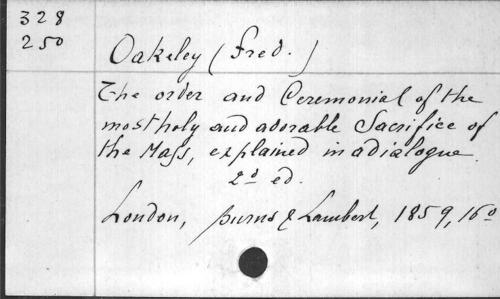 328
250
Oakeley (Fred.)
The order and Ceremonial of the
most holy and adorable Sacrifice of
the Mass, explained in a dialogue.
2d ed.
London, Burns & Lambert, 1859, 16o